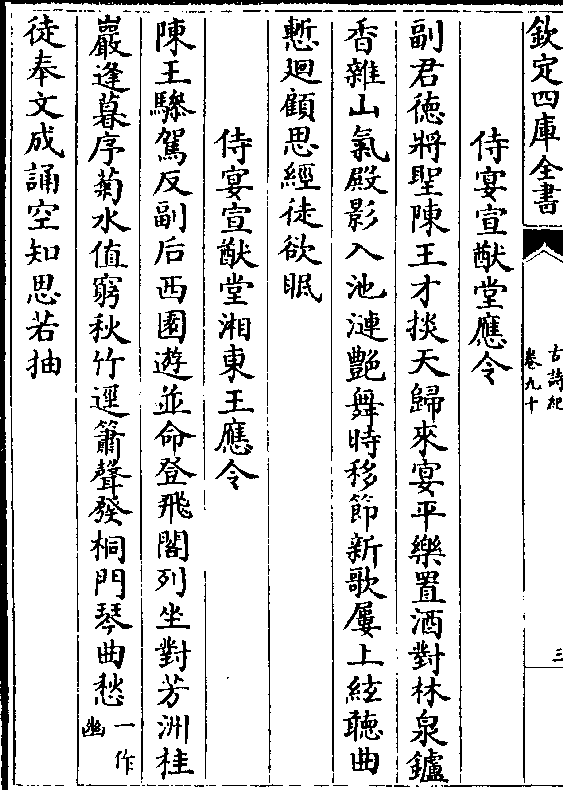 欽定四庫全書
古詩紀
卷九十
三
侍宴宣猷堂應令
副君徳將聖陳王才掞天歸來宴平樂置酒對林泉鑪
香雜山氣殿影入池漣艷舞時移節新歌屢上絃聴曲
慙迴顧思經徒欲眠
侍宴宣猷堂湘東王應令
陳王驂駕反副后西園遊並命登飛閣列坐對芳洲桂
巖逢暮序菊水值窮秋竹逕簫聲發桐門琴曲愁一作幽
徒奉文成誦空知思若抽